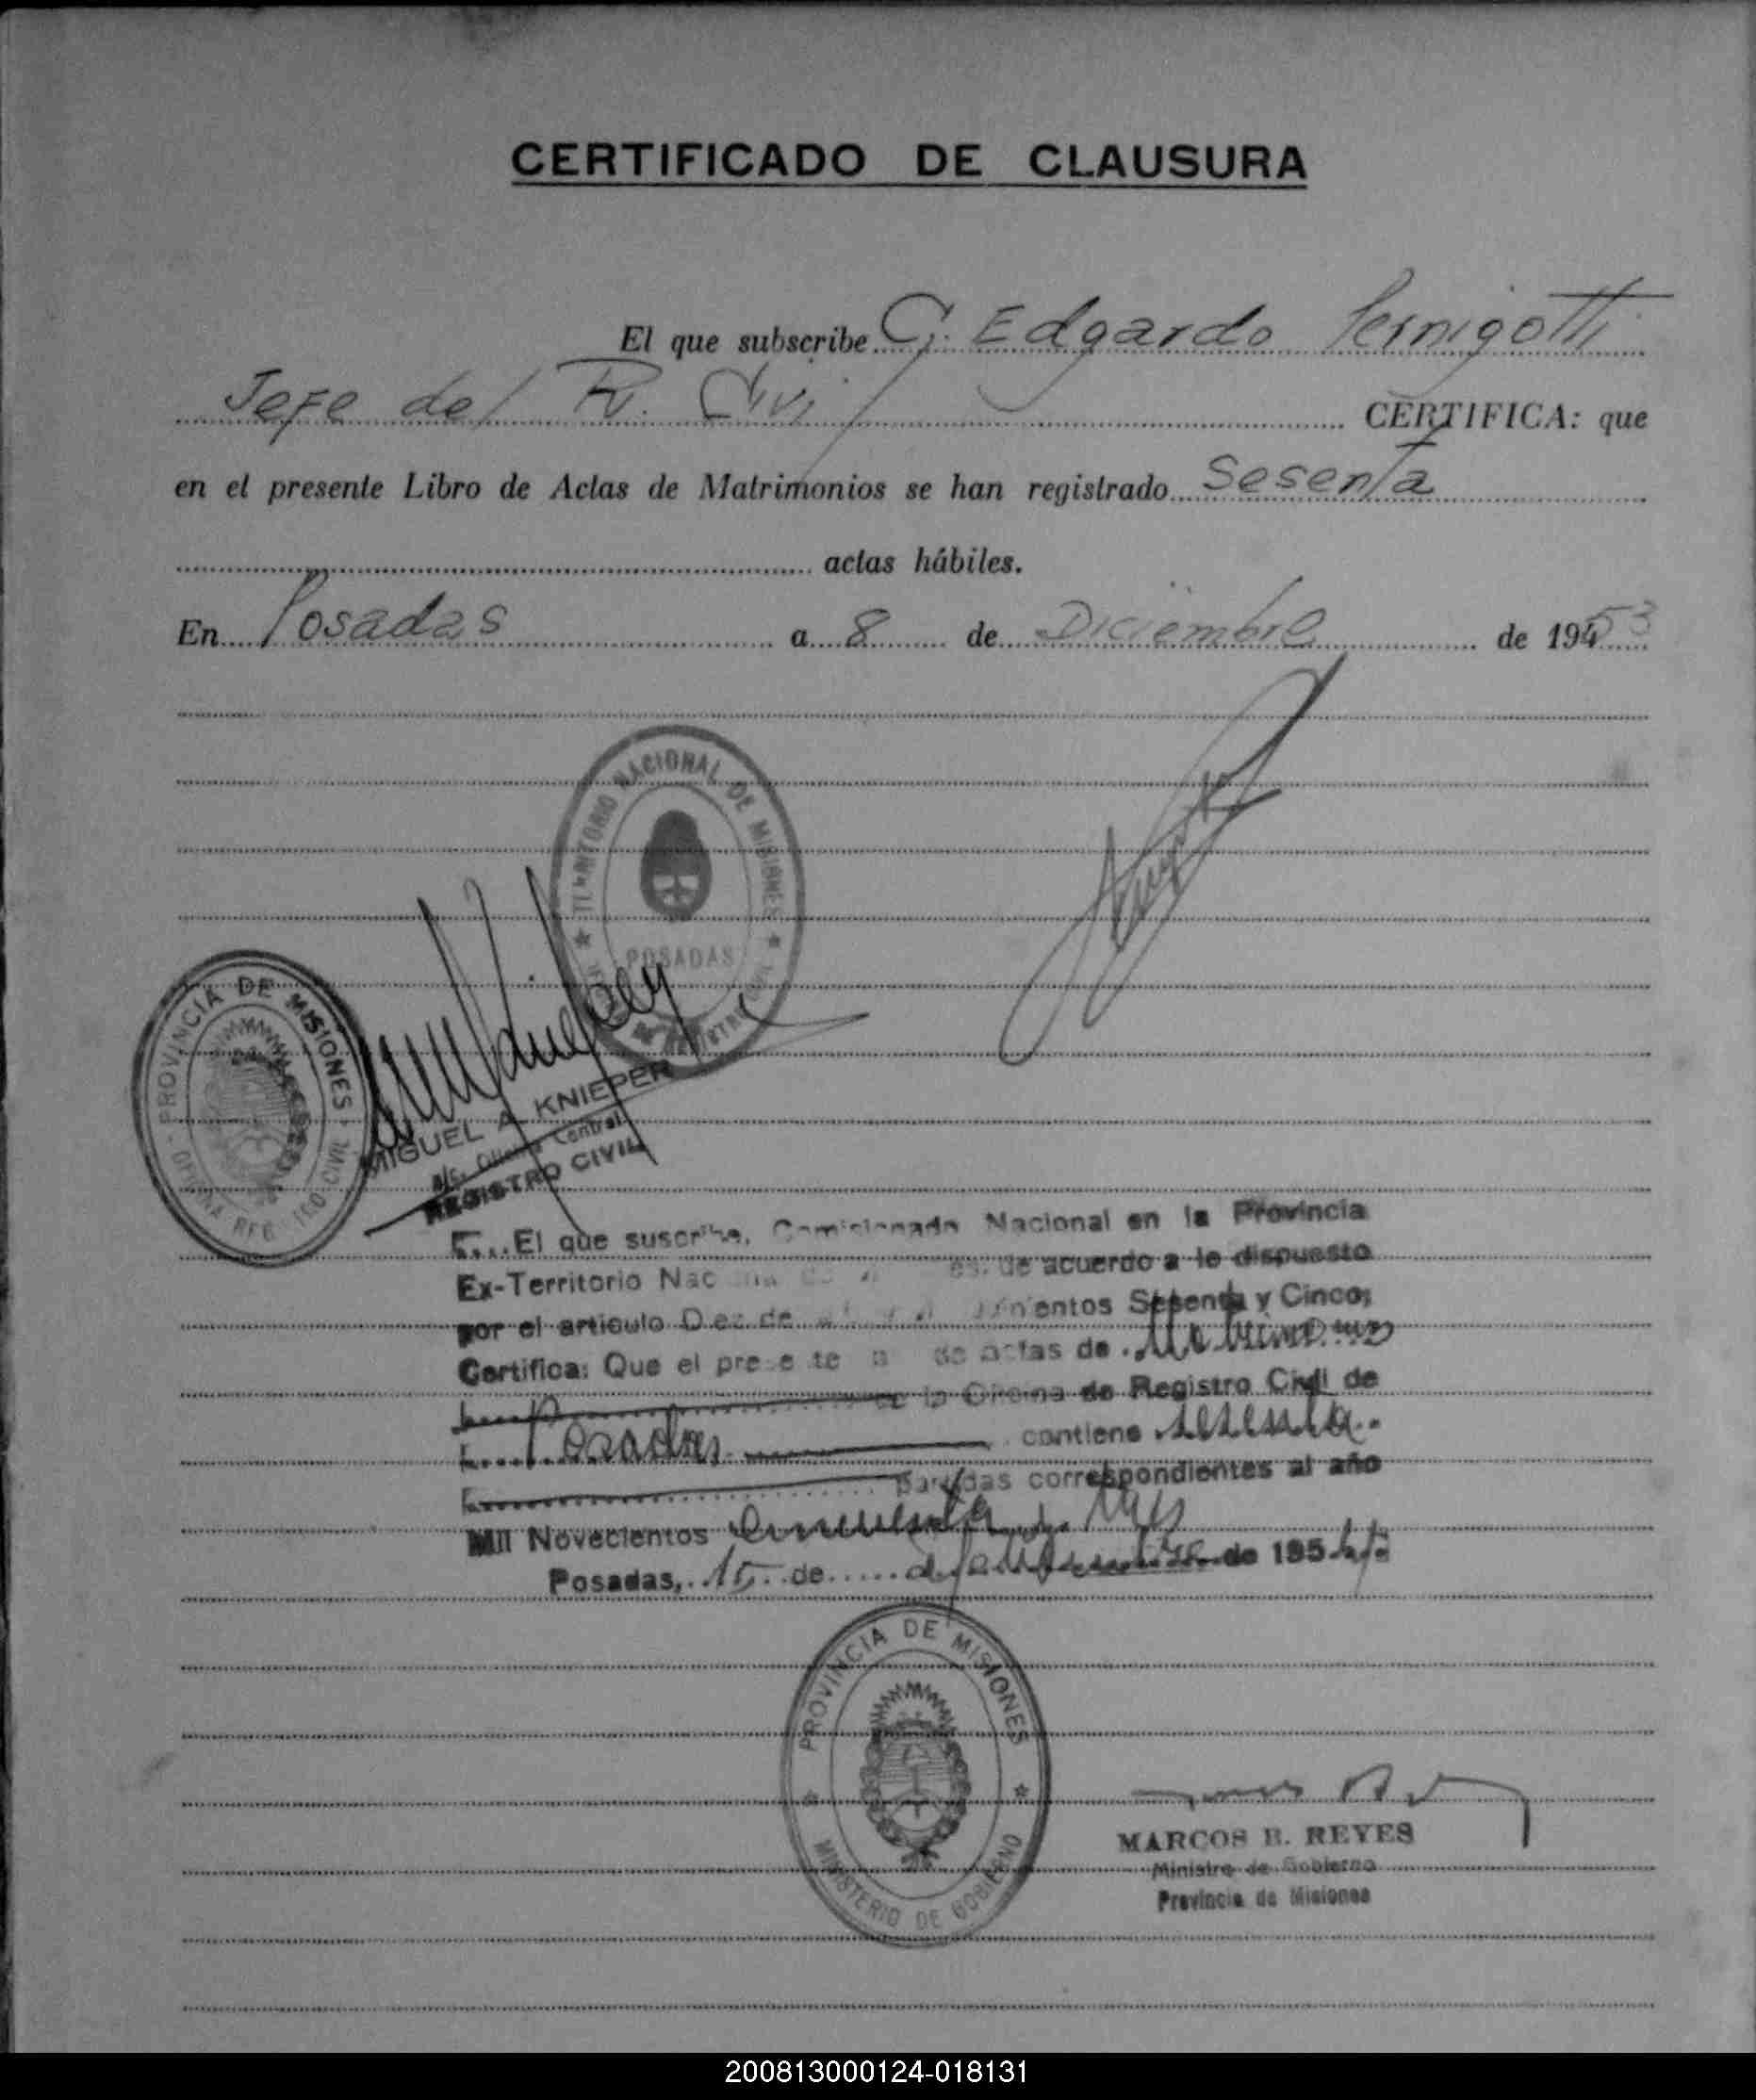 CERTIFICADO DE CLAUSURA
El que subscribe G. Edgardo Pernigotti
Jefe del R. Civil CERTIFICA: que
en el presente Libro de Actas de Matrimonios se han registrado Sesenta
actas hábiles.
En Posadas a 8 de Diciembre de 1953
TERRITORIO NACIONAL DE MISIONES
POSADAS
PROVINCIA DE MISIONES
OFICINA REGISTRO CIVIL
MIGUEL A. KNIEPER
A/c. Oficina Central
REGISTRO CIVIL
El que suscribe, Comisionado Nacional en la Provincia
Ex-Territorio de acuerdo a lo dispuesto
por el artículo Diez de Sesenta y Cinco;
Certifica: Que el presente de actas de Matrimonios
de la Oficina de Registro Civil de
Posadas contiene sesenta
partidas correspondientes al año
Mil Novecientos Cincuenta y tres
Posadas, 15 de de 195
PROVINCIA DE MISIONES
MINISTERIO DE GOBIERNO
MARCOS B. REYES
Ministro de Gobierno
Provincia de Misiones
200813000124-018131